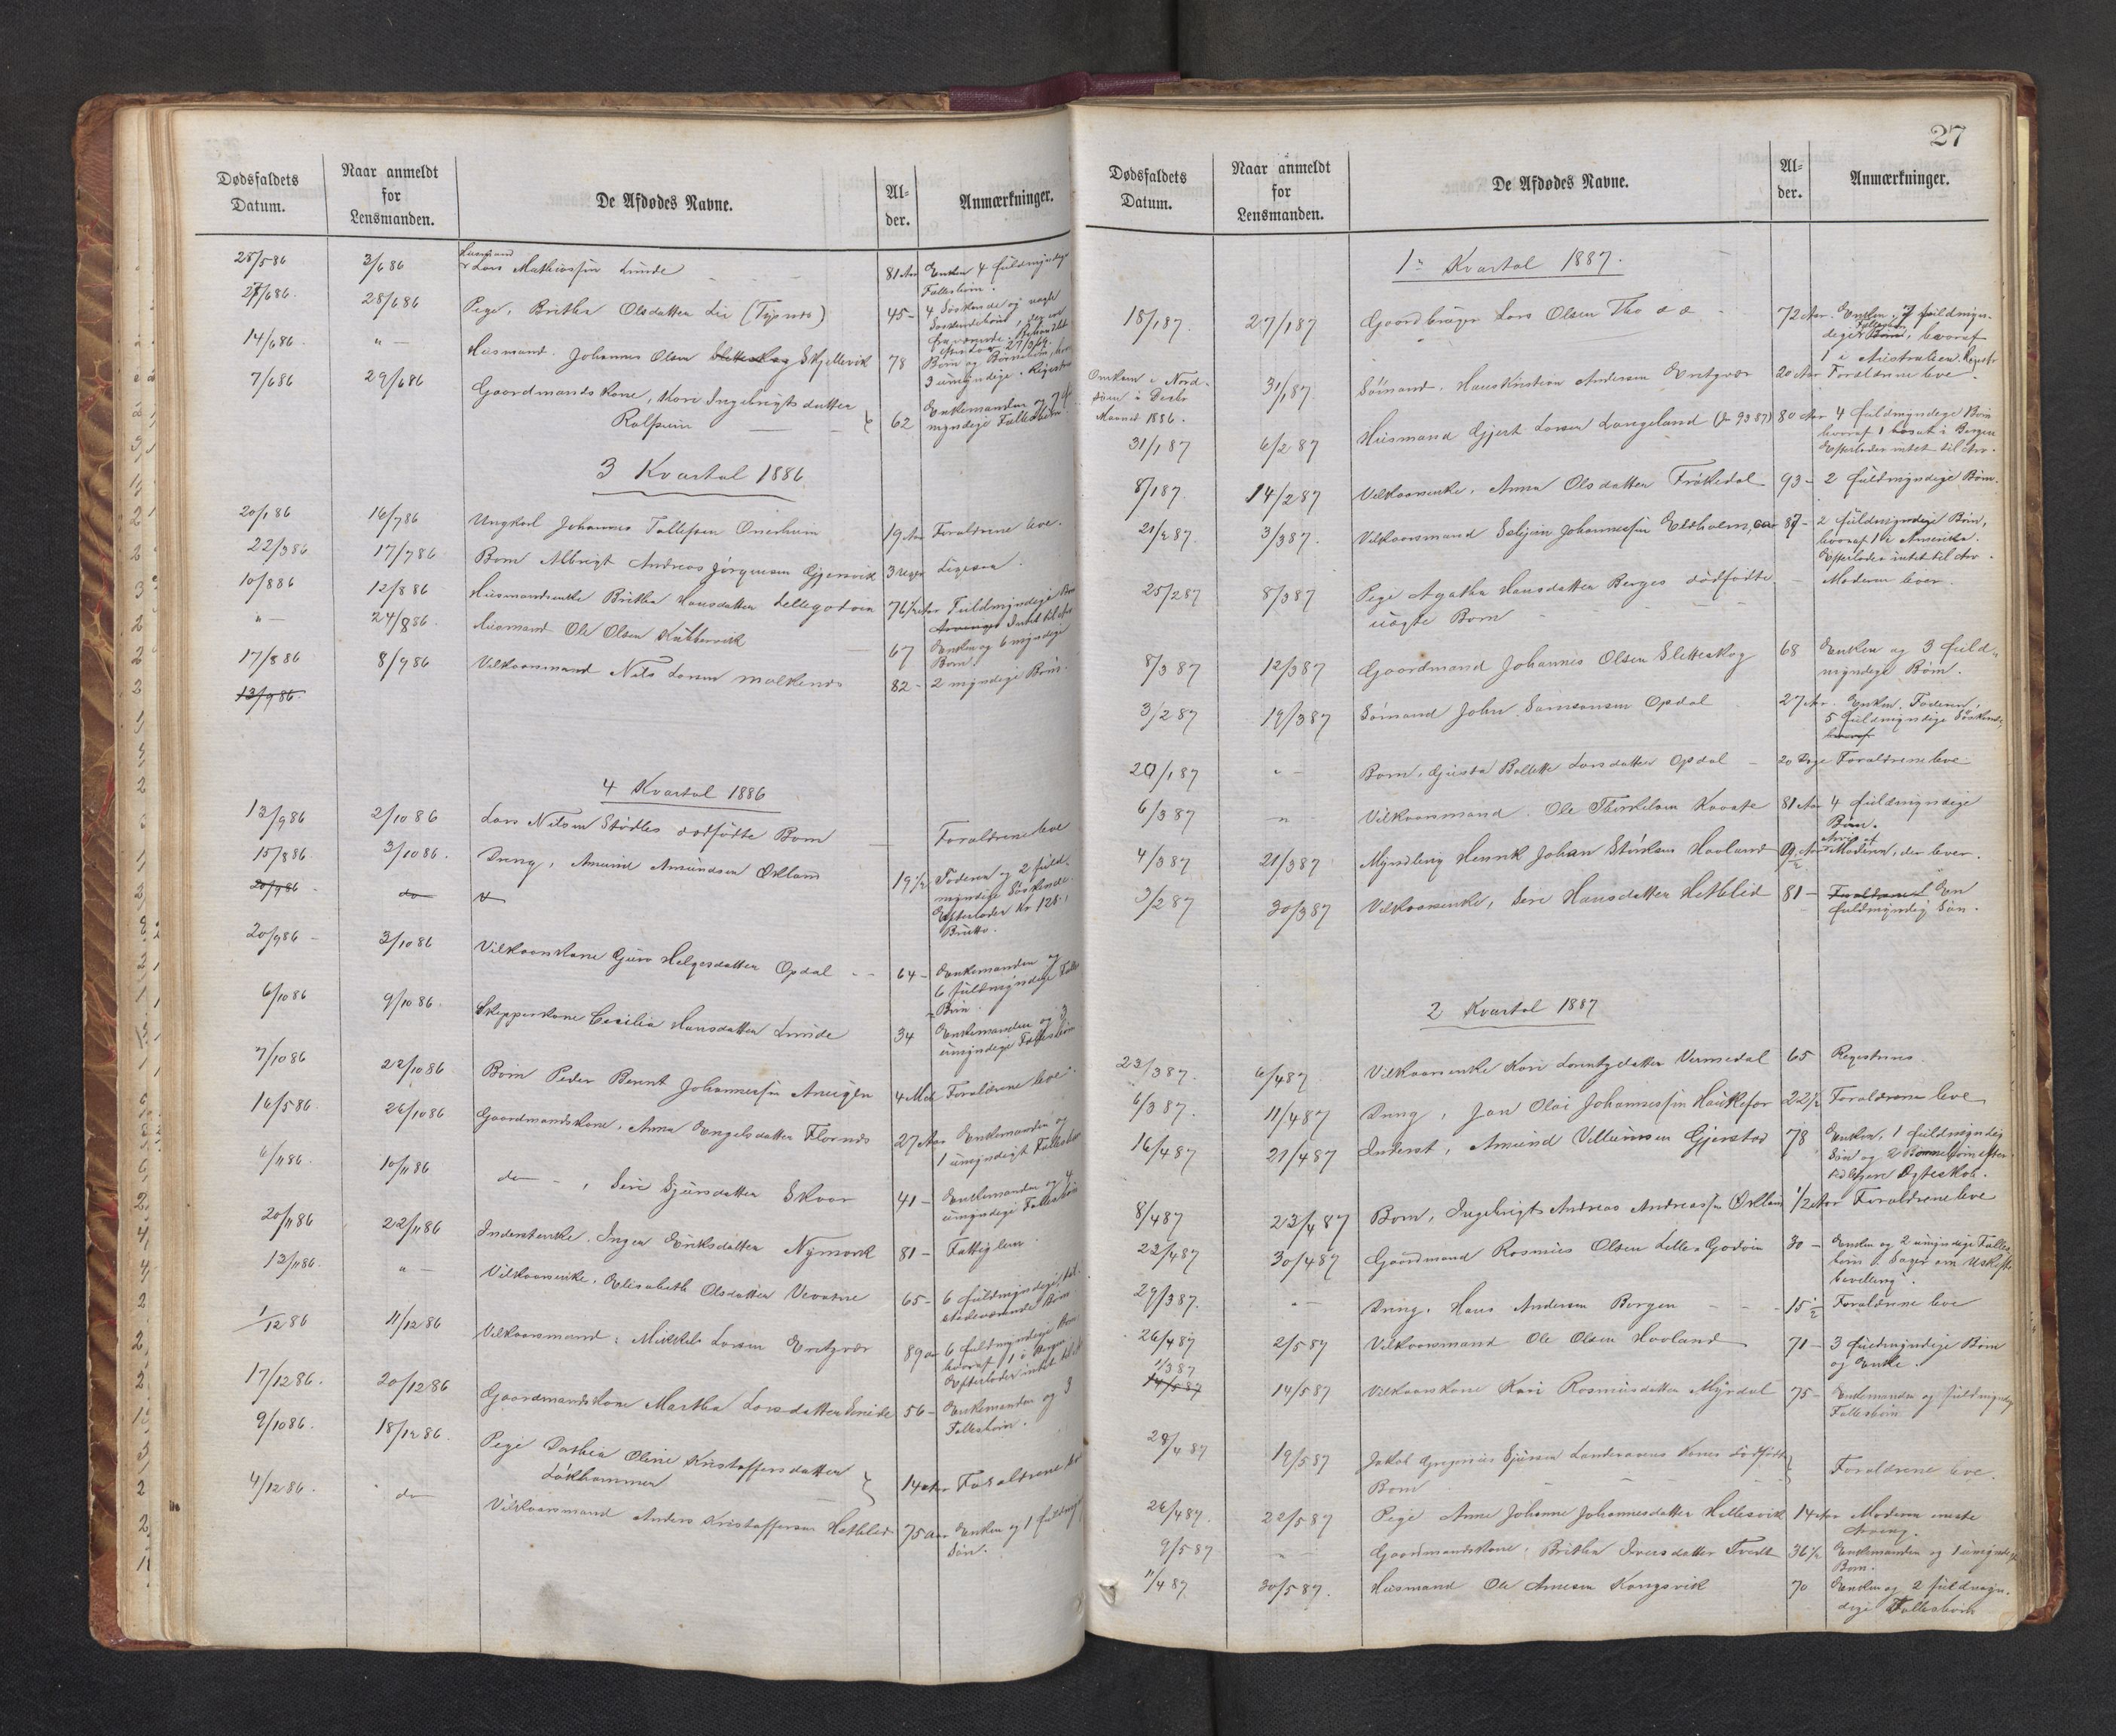 Dødsfaldets Datum.
Naar anmeldt for Lensmanden.
De Afdødes Navne.
Al-der.
Anmærkninger.
28/5 86 3/6 86 Husmand Lars Mathiassen Lunde 81 Aar Enken 4 fuldmyndige
Fællesbørn.
28/6 86 Pige, Britha Olsdatter Lie (Tysnes) 45 - 4 Søskende og nogle
14/6 86 " - Husmand. Johannes Olsen Skjellevik 78 Børn og Børnebørn,
3 umyndige. Registr
7/6 86 29/6 86 Gaardmandskone, Ingebrigtsdatter
62 Enkemanden og
myndige Fællesbørn.
3 Kvartal 1886
16/7 86 Ungkarl Johannes Tollefsen Onerheim 19 Aar Forældrene leve.
17/7 86 Barn Albrigt Andreas Jørgensen Gjersvik 3 Uger Ligesaa.
10/8 86 12/8 86 Husmandsenke Britha Hansdatter Lillegodøen 76½ Aar Fuldmyndige
" - 24/8 86. Husmand Ole Olsen Kubbervik 67 Enken og 6 myndige
Børn.
17/8 86 8/9 86 Vilkaarsmand Nils Larsen Malkenes 82 - 2 myndige Børn.
13/9 86.
4 Kvartal 1886
13/9 86 2/10 86 Lars Nilsen Stødles dødfødte Barn - Forældrene leve
15/8 86. 3/10 86. Dreng, Amund Amundsen Økland 19½ Faderen og 2 fuld-
myndige Søskende.
Efterlader Kr 128,
Brutto.
20/9 86 - do
20/9 86 - 3/10 86 Vilkaarskone Guro Helgesdatter Opdal - - 64 - Enkemanden og
6 fuldmyndige Fælles
Børn.
6/10 86 9/10 86. Skipperkone Cecilia Hansdatter Lunde 34 Enkemanden og 3
umyndige Fællesbørn
7/10 86 22/10 86 Barn Peder Bernt Johannessen 4 Md Forældrene leve.
16/5 86. 26/10 86 Gaardmandskone, Anna Engelsdatter Flornes 27 Aar Enkemanden og
1 umyndigt Fællesbarn
6/11 86. 10/11 86 do - , Siri Sjursdatter Skaar 41 - Enkemanden og 4
umyndige Fællesbørn
20/11 86 22/11 86 Inderstenke. Inger Eriksdatter Nymark 81 - Fattiglem.
13/11 86. " - Vilkaarsenke. Elisabeth Olsdatter Vevatne 65 - 6 fuldmyndige,
stedeværende Børn
1/12 86 11/12 86 Vilkaarsmand. Mikkel Larsen Eritzvær 89 Aar 6 fuldmyndige Børn
hvoraf 1 i Bergen
Efterlader intet
17/12 86. 20/12 86 Gaardmandskone Martha Larsdatter Lunde 56 - Enkemanden og 3
Fællesbørn.
9/10 86. 18/12 86. Pige Dorthea Oline Kristoffersdatter
Løkhammer 14 Aar Forældrene leve
4/12 86. do Vilkaarsmand Anders Kristoffersen Hetlelid 75 Aar Enken og 1 fuldmyndig
Søn.
27
Dødsfaldets Datum.
Naar anmeldt for Lensmanden.
De Afdødes Navne.
Al-der.
Anmærkninger.
1ste Kvartal 1887.
18/1 87. 27/1 87 Gaardbruger Lars Olsen 72 Aar. Enken, 7 fuldmyn-
dige Fællesbørn, hvoraf
1 i Australien. Registr
Omkom i Nord-
søen i Decbr
Maaned 1886. 31/1 87. Sømand. Hans Kristian Andersen Eritzvær 20 Aar Forældrene leve.
31/1 87 6/2 87 Husmand Gjert Larsen Langeland 80 Aar 4 fuldmyndige Børn
hvoraf 1 bosat i Bergen
Efterlader intet til Arv.
8/1 87. 14/2 87 Vilkaarsenke, Anna Olsdatter Frøkedal 93 - 2 fuldmyndige Børn.
21/2 87. 3/3 87. Vilkaarsmand Johannessen Eldholm, 87 - 2 fuldmyndige Børn,
hvoraf 1 i Amerika.
Efterlader intet til Arv.
25/2 87 8/3 87 Pige Agatha Hansdatter Berges dødfødte - Moderen lever.
uægte Barn -
8/3 87 12/3 87 Gaardmand Johannes Olsen Sletteskog 68 Enken og 3 fuld-
myndige Børn.
3/2 87 19/3 87 Sømand John Samsonsen Opdal 27 Aar. Enken. Faderen,
5 fuldmyndige Søskende,
hvoraf
20/1 87 " - Barn, Gusta Bollette Larsdatter Opdal - 20 Dage Forældrene leve
6/3 87 " Vilkaarsmand. Ole Thorkelsen Kaate 81 Aar 4 fuldmyndige
Børn.
4/3 87 21/3 87 Myndling Henrik Johan Størksen Haaland 9½ Aar Moderen, der lever.
3/2 87 30/3 87 Vilkaarsenke, Siri Hansdatter Hetlelid 81 - Forældrene En
fuldmyndig Søn.
2 Kvartal 1887
23/3 87. 6/4 87 Vilkaarsenke Kari Lorentzdatter Vermedal 65 Registreres
6/3 87. 11/4 87 Dreng, Jan Olai Johannessen Haukefær 22½ Forældrene leve
16/4 87 21/4 87 Inderst, Amund Villumsen Gjerstad 78 Enken, 1 fuldmyndig
Søn og 2 Børnebørn efter
tidligere Ægteskab.
8/4 87 23/4 87 Barn, Ingebrigt Andreas Andreassen Økland ½ Aar Forældrene leve
22/4 87 30/4 87 Gaardmand Rasmus Olsen Lille Godøen 30 - Enken og 2 umyndige Fælles-
børn. Søger om Uskifte-
bevilling.
29/3 87. " - Dreng, Hans Andersen Bergen - - - 15½ Forældrene leve
26/4 87 2/5 87 Vilkaarsmand Ole Olsen Haaland 71 - 3 fuldmyndige Børn
og Enke.
1/3 87
14/5 87 14/5 87 Vilkaarskone Kari Rasmusdatter Myrdal 75 - Enkemanden og fuldmyndig
Fællesbørn
28/4 87 19/5 87 Jakob Gregorius Sjursen Landeraaens Kones dødfødte
Barn Forældrene leve.
26/4 87. 22/5 87 Pige Anne Johanne Johannesdatter Hillesvik 14 Aar Moderen eneste
Arving.
9/5 87 " - Gaardmandskone. Britha Iversdatter Tvedt 36½ Enkemanden og 1 umyndigt
Barn.
11/4 87 30/5 87. Husmand Ole Arnesen Kongsvik 70 Enken og 2 fuldmyn-
dige Fællesbørn